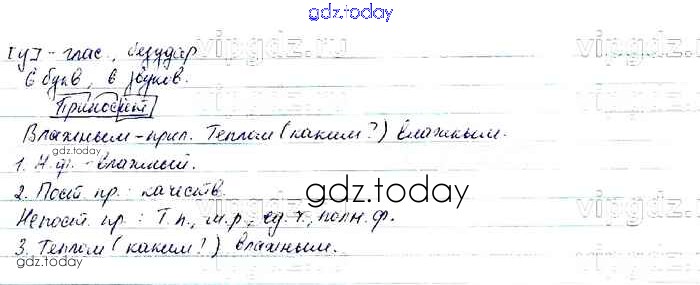 gdz.today
[у] - глас., безудар
vipgdz.ru
6 букв, 6 звуков.
Приносит
Влажным - прил. Теплом (каким?) влажным.
gdz.today
1. Н.ф. - влажный.
2. Пост. пр.: качеств.
gdz.today
vipgdz.ru
Непост. пр.: Т.п., м.р., ед.ч., полн.ф.
3. Теплом (каким?) влажным.
gdz.today